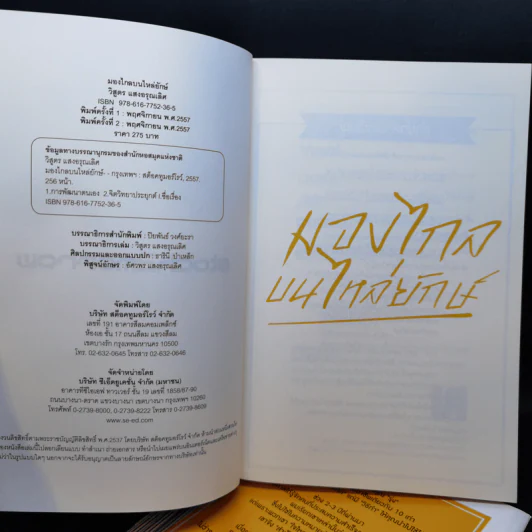 มองไกลบนไหล่ยักษ์
วิสูตร แสงอรุณเลิศ
ISBN 978-616-7752-36-5
พิมพ์ครั้งที่ 1 : พฤศจิกายน พ.ศ.2557
พิมพ์ครั้งที่ 2 : พฤศจิกายน พ.ศ.2557
ราคา 275 บาท
ข้อมูลทางบรรณานุกรมของสำนักหอสมุดแห่งชาติ
วิสูตร แสงอรุณเลิศ
มองไกลบนไหล่ยักษ์.- กรุงเทพฯ : สต็อคทูมอร์โรว์, 2557.
256 หน้า.
1.การพัฒนาตนเอง 2.จิตวิทยาประยุกต์ I.ชื่อเรื่อง
ISBN 978-616-7752-36-5
บรรณาธิการสำนักพิมพ์ : ปิยพันธ์ วงศ์ยะรา
บรรณาธิการเล่ม : วิสูตร แสงอรุณเลิศ
ศิลปกรรมและออกแบบปก : ธารินี ปาเหล็ก
พิสูจน์อักษร : อัศวพร แสงอรุณเลิศ
จัดพิมพ์โดย
บริษัท สต็อคทูมอร์โรว์ จำกัด
เลขที่ 191 อาคารสีลมคอมเพล็กซ์
ห้องเอ ชั้น 17 ถนนสีลม แขวงสีลม
เขตบางรัก กรุงเทพมหานคร 10500
โทร. 02-632-0645 โทรสาร 02-632-0645
จัดจำหน่ายโดย
บริษัท ซีเอ็ดยูเคชั่น จำกัด (มหาชน)
อาคารทีซีไอเอฟ ทาวเวอร์ ชั้น 19 เลขที่ 1858/87-90
ถนนบางนา-ตราด แขวงบางนา เขตบางนา กรุงเทพฯ 10260
โทรศัพท์ 0-2739-8000, 0-2739-8222 โทรสาร 0-2739-8509
www.se-ed.com
มองไกล
บนไหล่ยักษ์